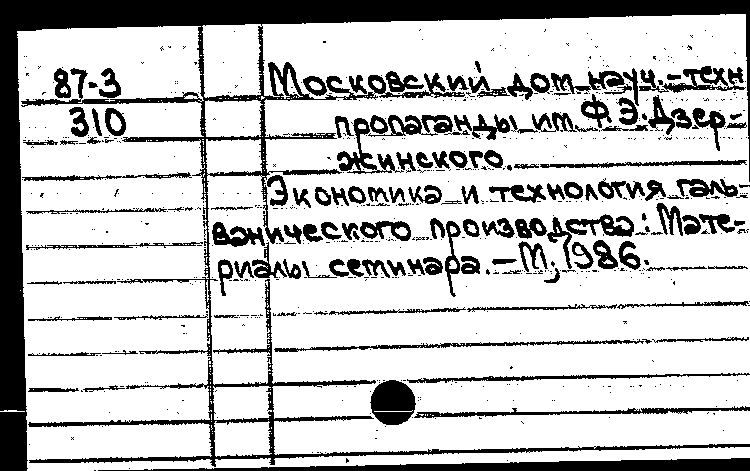 87-3 Московский дом науч.-техн
310 пропаганды им. Ф.Э.Дзер-
жинского.
Экономика и технология галь-
ванического производства: Мате-
риалы семинара.-М., 1986.